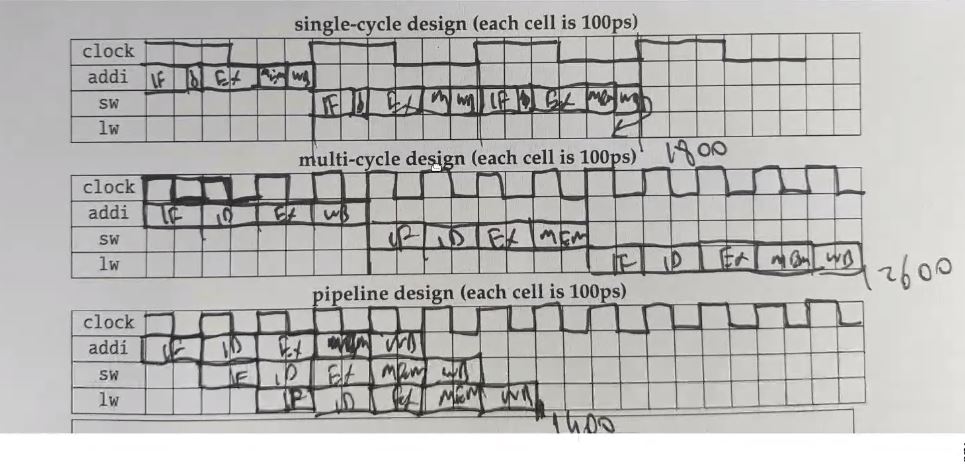 single-cycle design (each cell is 100ps)
clock
addi IF D Ex mem WB
sw IF D Ex M WB IF D Ex mem WB
lw
1800
multi-cycle design (each cell is 100ps)
clock
addi IF ID Ex WB
sw IF ID Ex MEM
lw IF ID Ex MEM WB
2600
pipeline design (each cell is 100ps)
clock
addi IF ID Ex mem WB
sw IF ID Ex mem WB
lw IF ID Ex MEM WB
1400